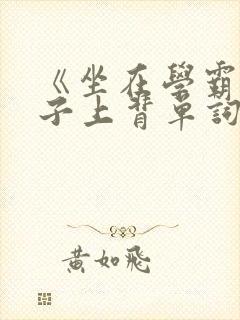 《坐在學霸
子上背單詞
黃如飛